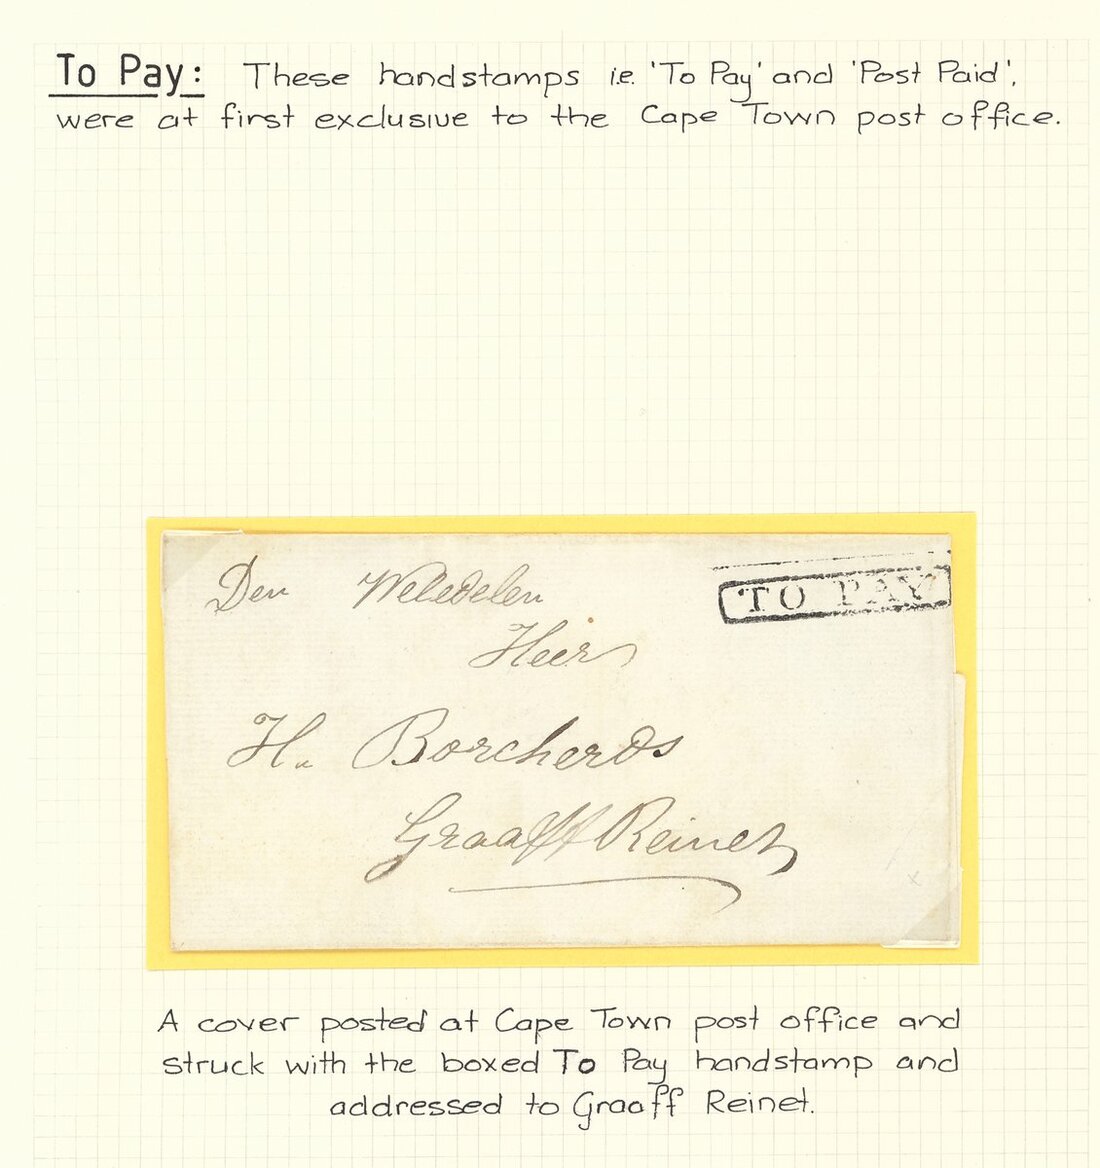 To Pay: These handstamps i.e. 'To Pay' and 'Post Paid',
were at first exclusive to the Cape Town post office.
Den Weledelen
TO PAY
Heer
H. Borcherds
Graaff Reinet
A cover posted at Cape Town post office and
struck with the boxed To Pay handstamp and
addressed to Graaff Reinet.